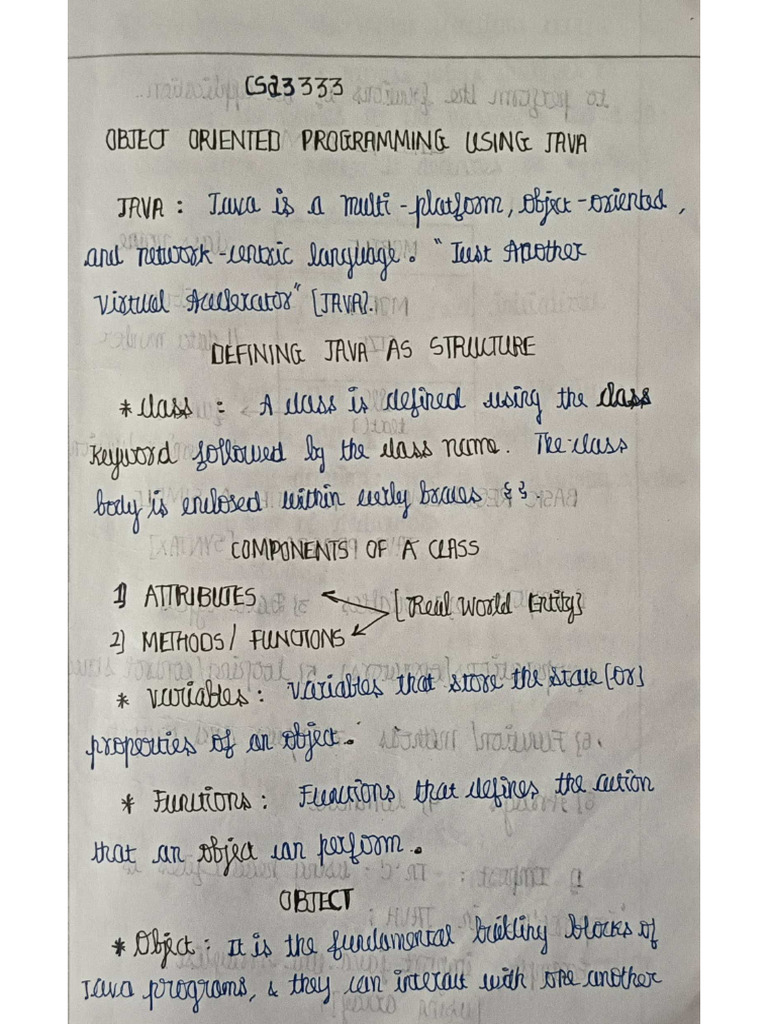 CS23333
OBJECT ORIENTED PROGRAMMING USING JAVA
JAVA : Java is a multi-platform, object-oriented,
and network-centric language. "Just Another
Virtual Accelerator" [JAVA].
DEFINING JAVA AS STRUCTURE
* class : A class is defined using the class
keyword followed by the class name. The class
body is enclosed within curly braces { }.
COMPONENTS OF A CLASS
1) ATTRIBUTES
[Real World Entity}
2) METHODS / FUNCTIONS
* Variables : Variables that store the state [or}
properties of an object.
* Functions : Functions that defines the action
that an object can perform.
OBJECT
* Object : It is the fundamental building blocks of
Java programs, & they can interact with one another